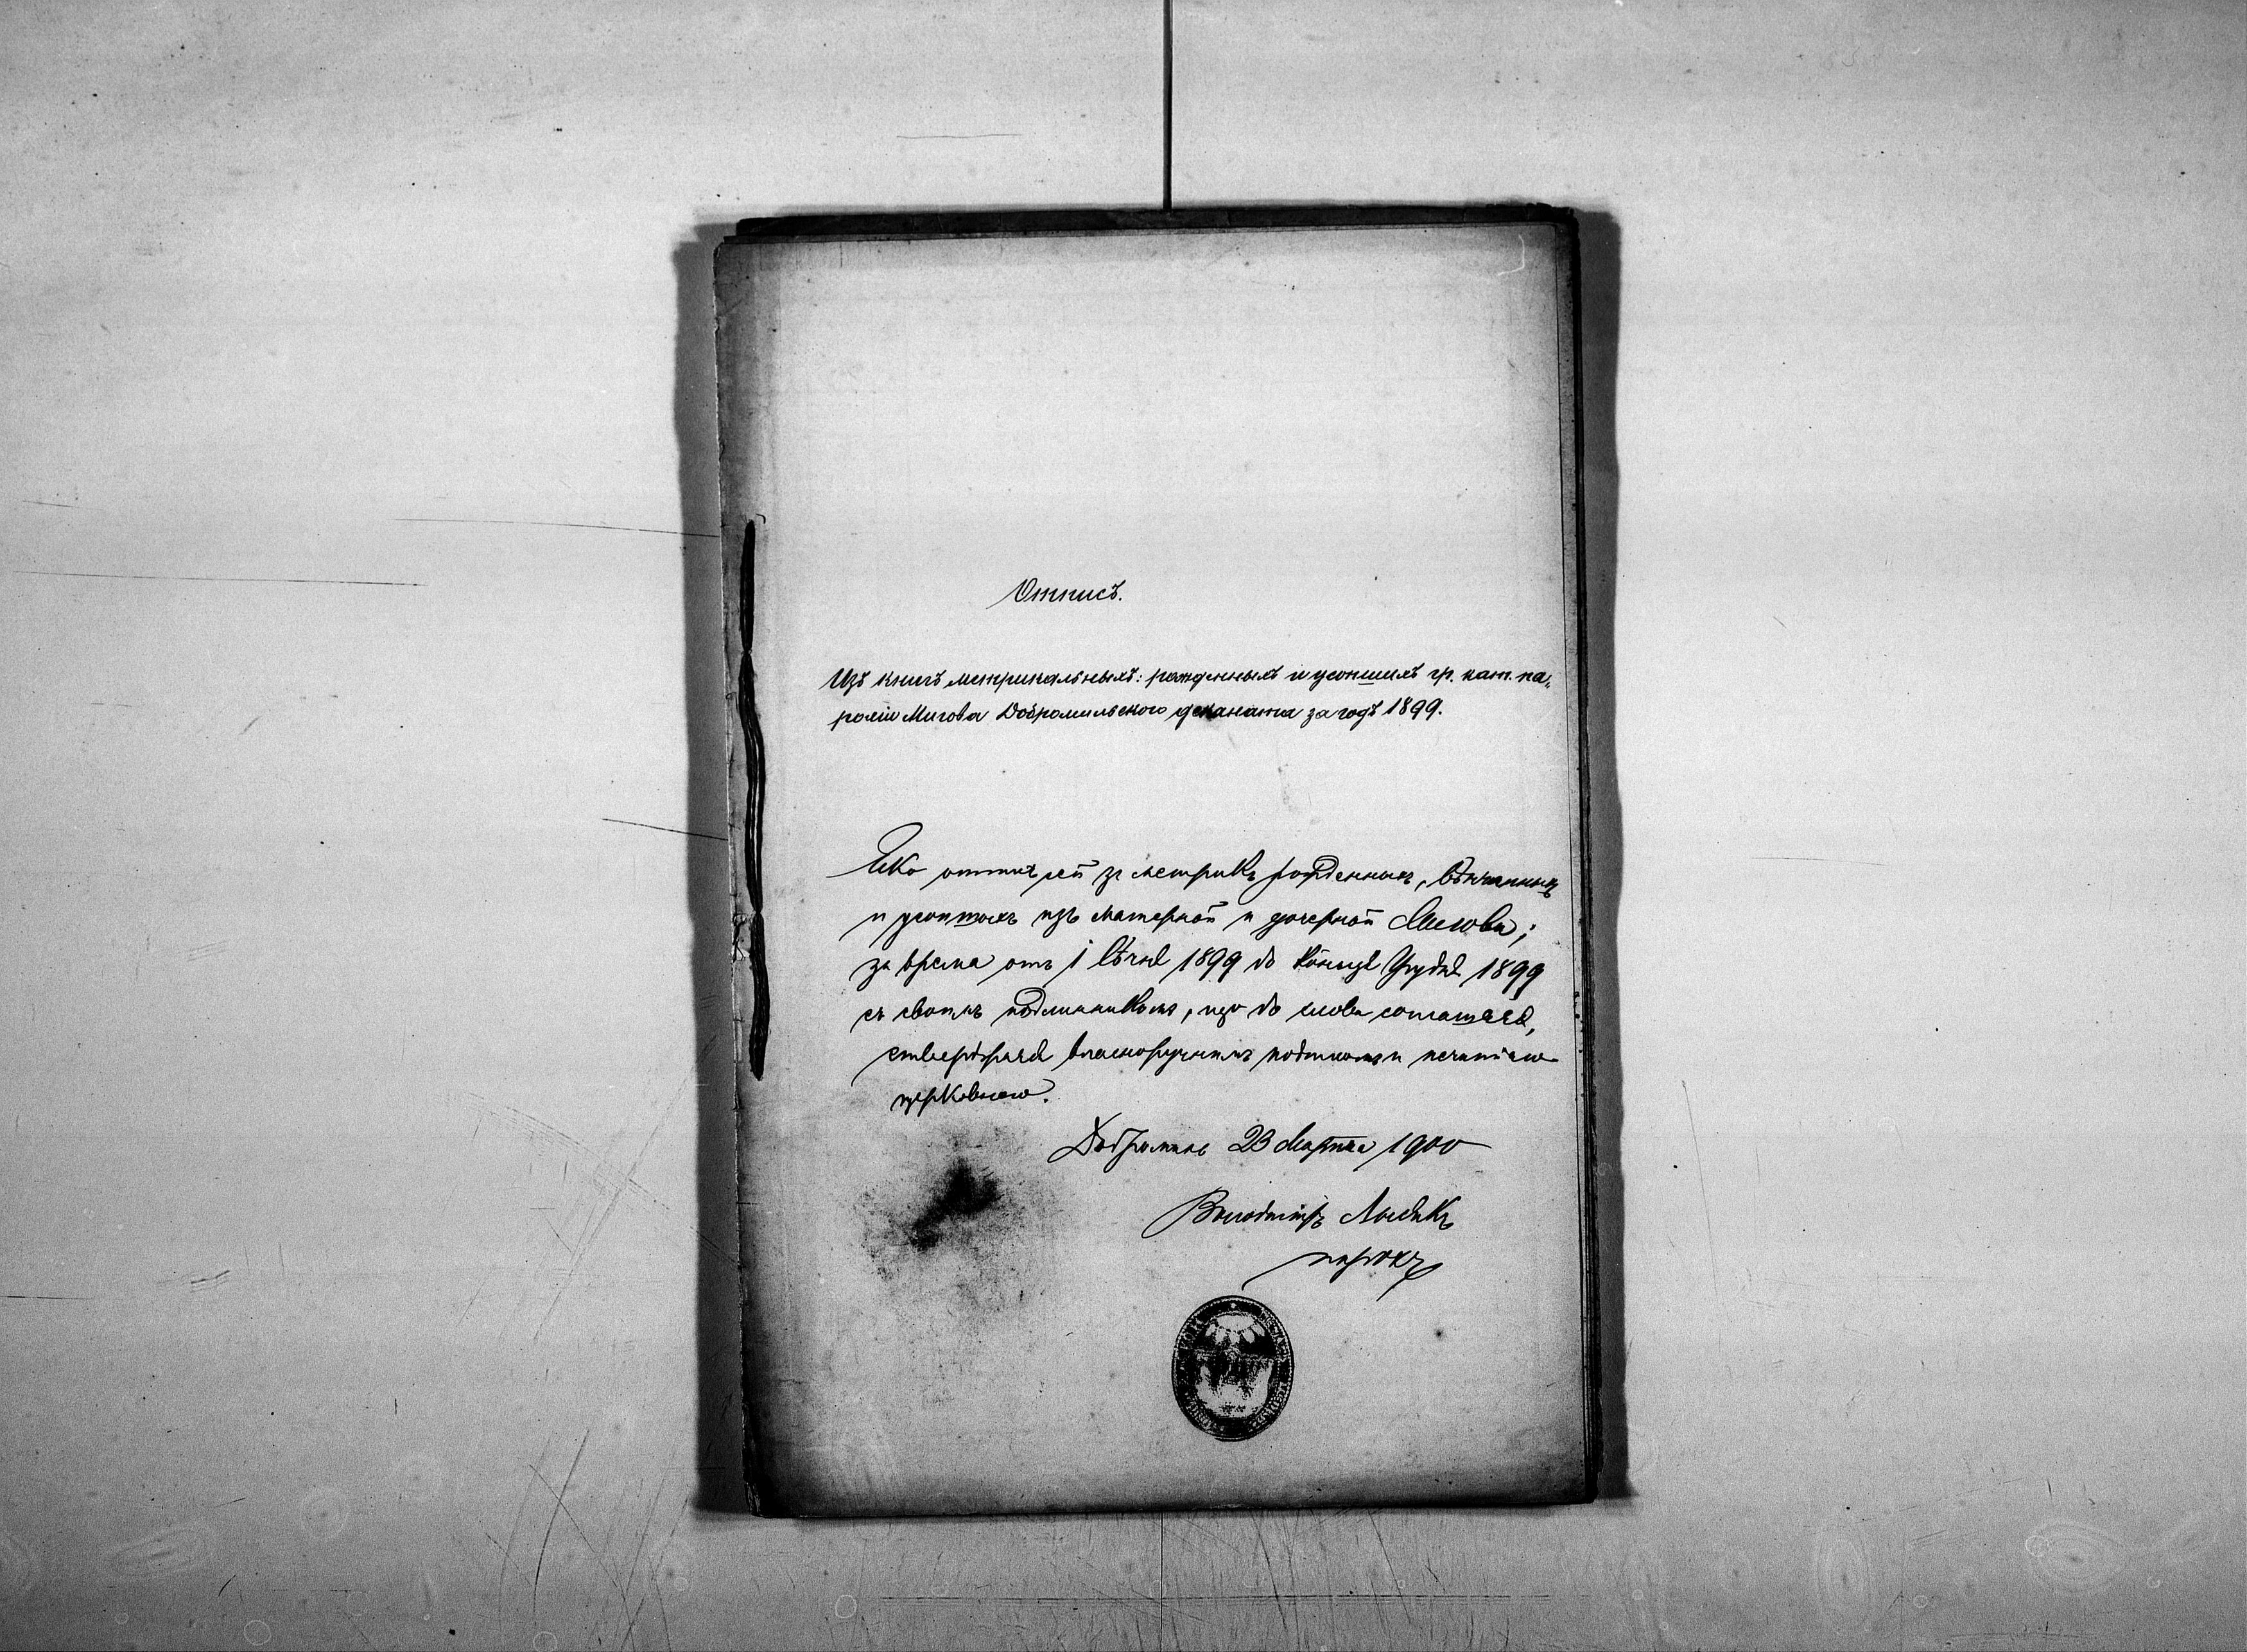 Отписъ.
Изъ книгъ метрикальныхъ: рожденныхъ и усопшихъ гр. кат. па-
рохіи Мигова Добромильского деканата за годъ 1899.
Яко отпись сей зъ метрикъ рожденныхъ, вѣнчанныхъ
и усопшихъ изъ матерной и дочерной Мигова;
за время отъ 1 Сѣчня 1899 до Конця Грудня 1899
съ своимъ подлинникомъ, що до слова соглашаеся,
ствердждаеся власноручнымъ подписомъ и печатію
церковною.
Добромиль 23 Марта 1900
Володиміръ Лысякъ
парохъ